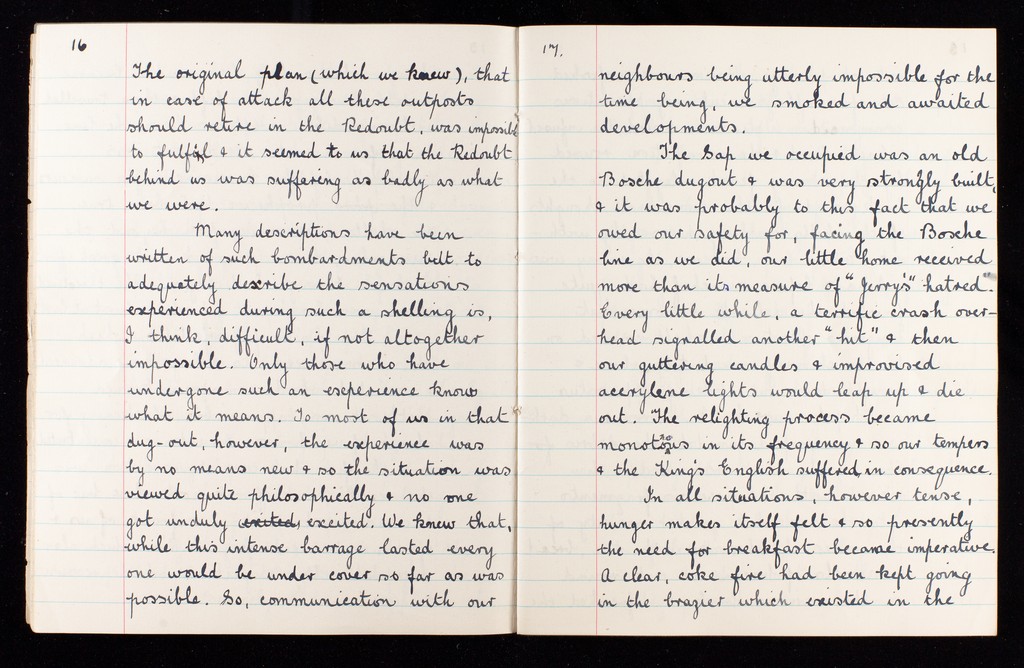 16
The original plan (which we knew), that
in case of attack all these outposts
should retire in the Redoubt, was impossible
to fulfil & it seemed to us that the Redoubt
behind us was suffering as badly as what
we were.
Many descriptions have been
written of such bombardments but to
adequately describe the sensations
experienced during such a shelling is,
I think, difficult, if not altogether
impossible. Only those who have
undergone such an experience know
what it means. To most of us in that
dug-out, however, the experience was
by no means new & so the situation was
viewed quite philosophically & no one
got unduly exited, excited. We knew that,
while this intense barrage lasted every
one would be under cover so far as was
possible. So, communication with our
17.
neighbours being utterly impossible for the
time being, we smoked and awaited
developments.
The Sap we occupied was an old
Bosche dugout & was very strongly built,
& it was probably to this fact that we
owed our safety for, facing the Bosche
line as we did, our little home received
more than its measure of "Jerry's" hatred".
Every little while, a terrific crash over-
head signalled another "hit" & then
our guttering candles & improvised
accrylene lights would leap up & die
out. The relighting process became
monotonous in its frequency & so our tempers
& the King's English suffered, in consequence.
In all situations, however tense,
hunger makes itself felt & so presently
the need for breakfast became imperative.
A clear, coke fire had been kept going
in the brazier which existed in the